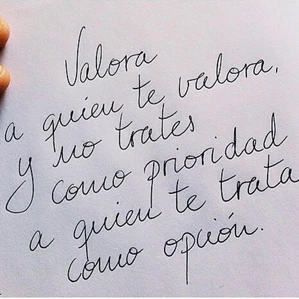 Valora
a quien te valora,
y no trates
como prioridad
a quien te trata
como opción.